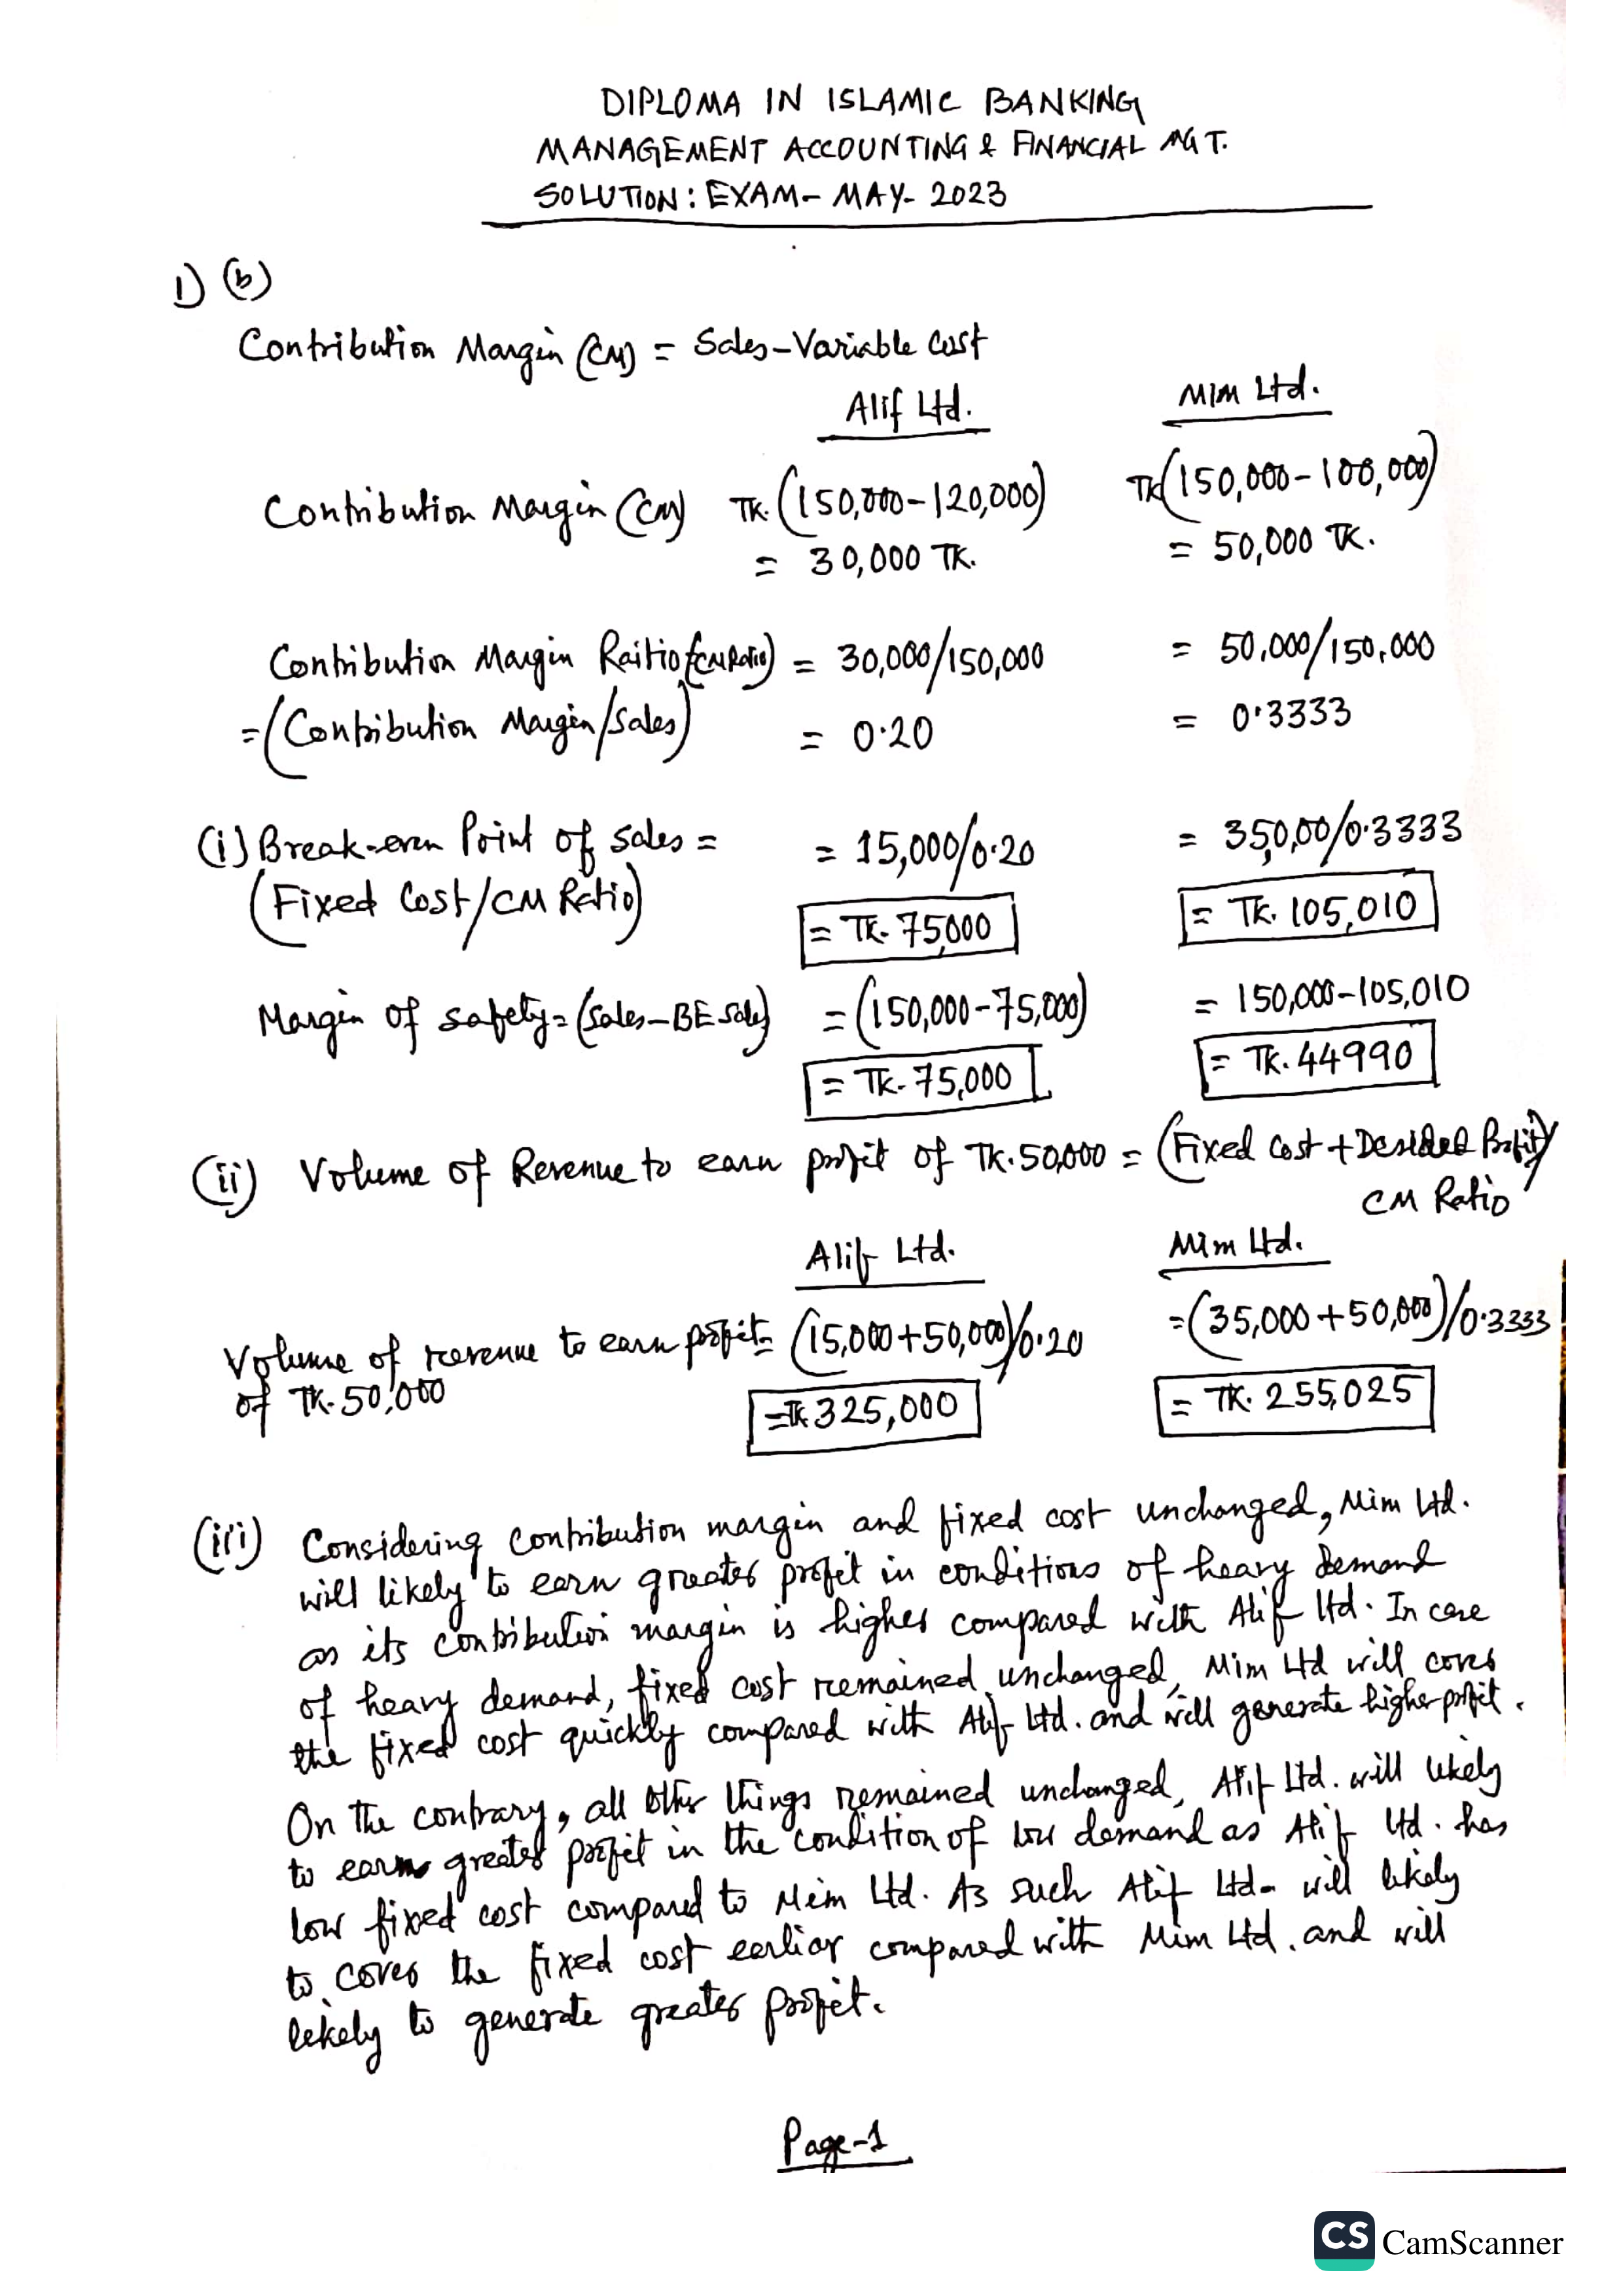 DIPLOMA IN ISLAMIC BANKING
MANAGEMENT ACCOUNTING & FINANCIAL MGT.
SOLUTION: EXAM- MAY- 2023
1) (b)
Contribution Margin (CM) = Sales-Variable Cost
Alif Ltd. Mim Ltd.
Contribution Margin (CM) TK. (150,000-120,000) TK(150,000-100,000)
= 30,000 TK. = 50,000 TK.
Contribution Margin Raitio (CM Ratio) = 30,000/150,000 = 50,000/150,000
=(Contribution Margin/Sales) = 0.20 = 0.3333
(i) Break-even Point of Sales = = 15,000/0.20 = 350,00/0.3333
(Fixed Cost/CM Ratio) = TK. 75000 = TK. 105,010
Margin of safety=(Sales-BE Sales) =(150,000-75,000) = 150,000-105,010
= TK. 75,000 = TK. 44990
(ii) Volume of Revenue to earn profit of TK. 50,000 = (Fixed Cost + Desided Profit)/
CM Ratio
Alif Ltd. Mim Ltd.
Volume of revenue to earn profit= (15,000+50,000)/0.20 =(35,000+50,000)/0.3333
of TK. 50,000 =TK 325,000 = TK. 255,025
(iii) Considering contribution margin and fixed cost unchanged, Mim Ltd.
will likely to earn greater profit in conditions of heavy demand
as its contribution margin is higher compared with Alif Ltd. In case
of heavy demand, fixed cost remained unchanged, Mim Ltd will cover
the fixed cost quickly compared with Alif Ltd. and will generate higher profit.
On the contrary, all other things remained unchanged, Alif Ltd. will likely
to earn greater profit in the condition of low demand as Alif Ltd. has
low fixed cost compared to Mim Ltd. As such Alif Ltd. will likely
to cover the fixed cost earlier compared with Mim Ltd. and will
likely to generate greater profit.
Page-1
CS CamScanner